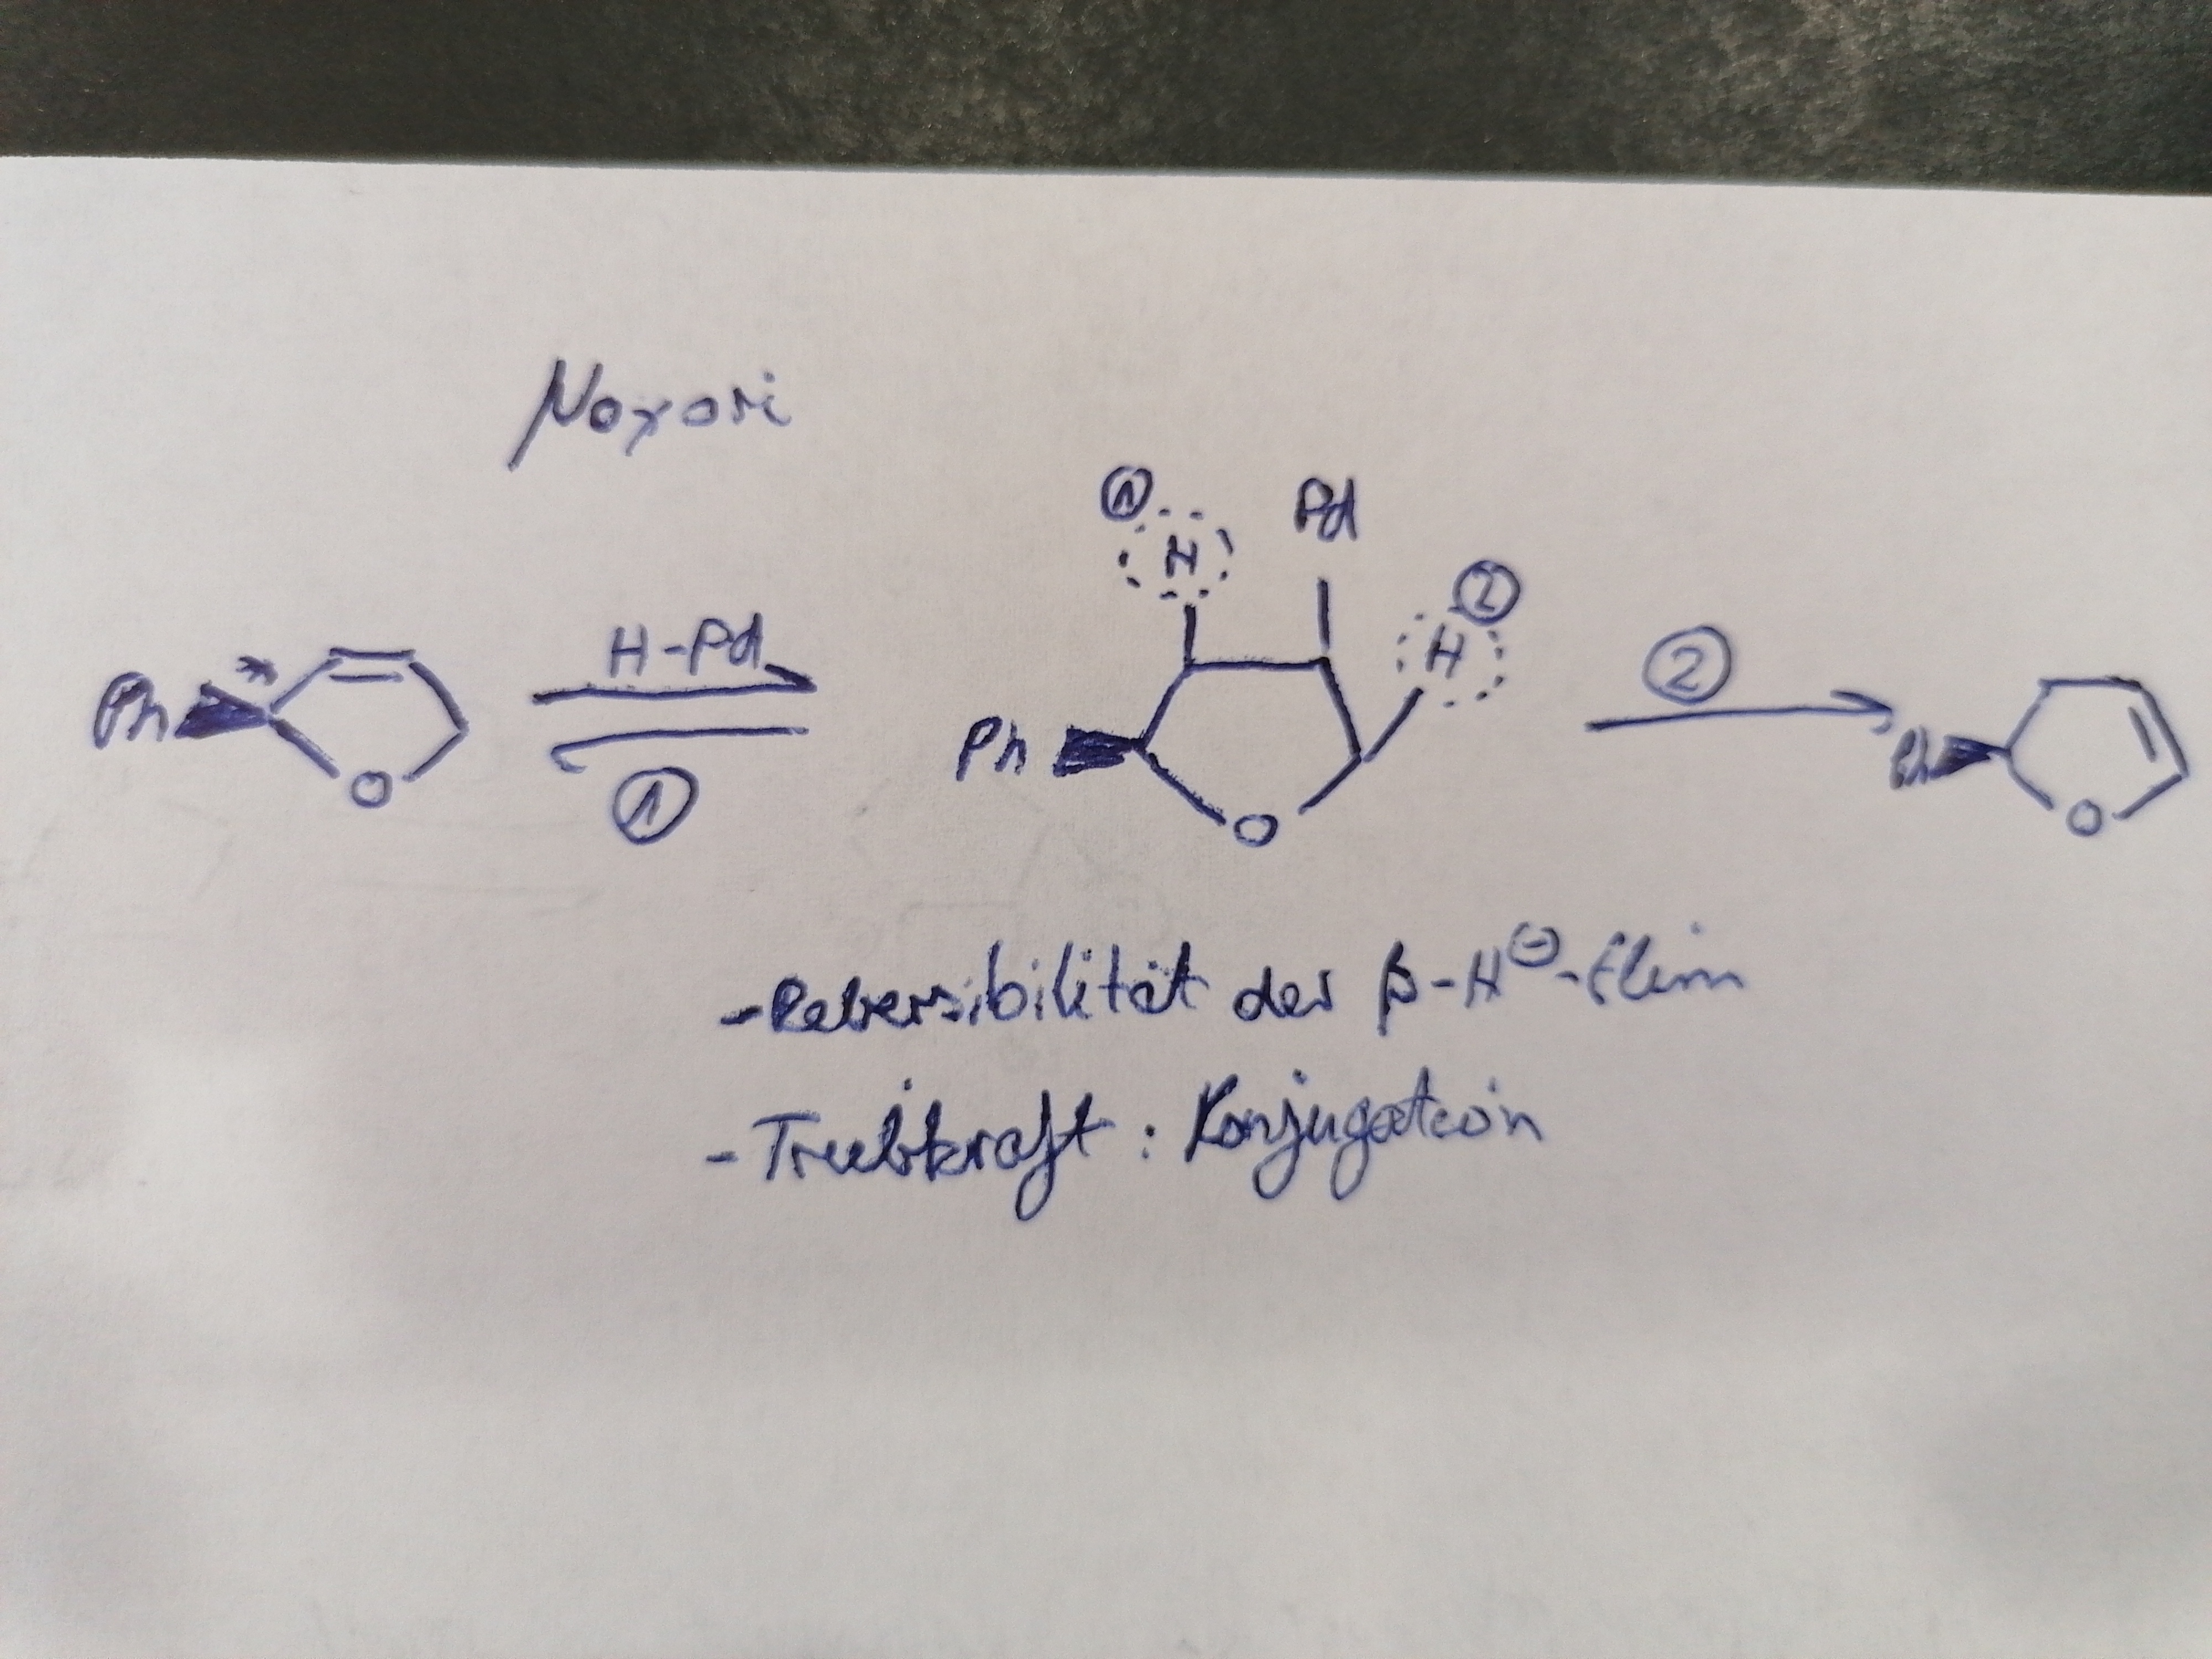 Noyori
① H Pd H ②
Ph * O H-Pd ① Ph O ② Ph O
- Reversibilität der β-H⊖-Elim
- Triebkraft : Konjugation